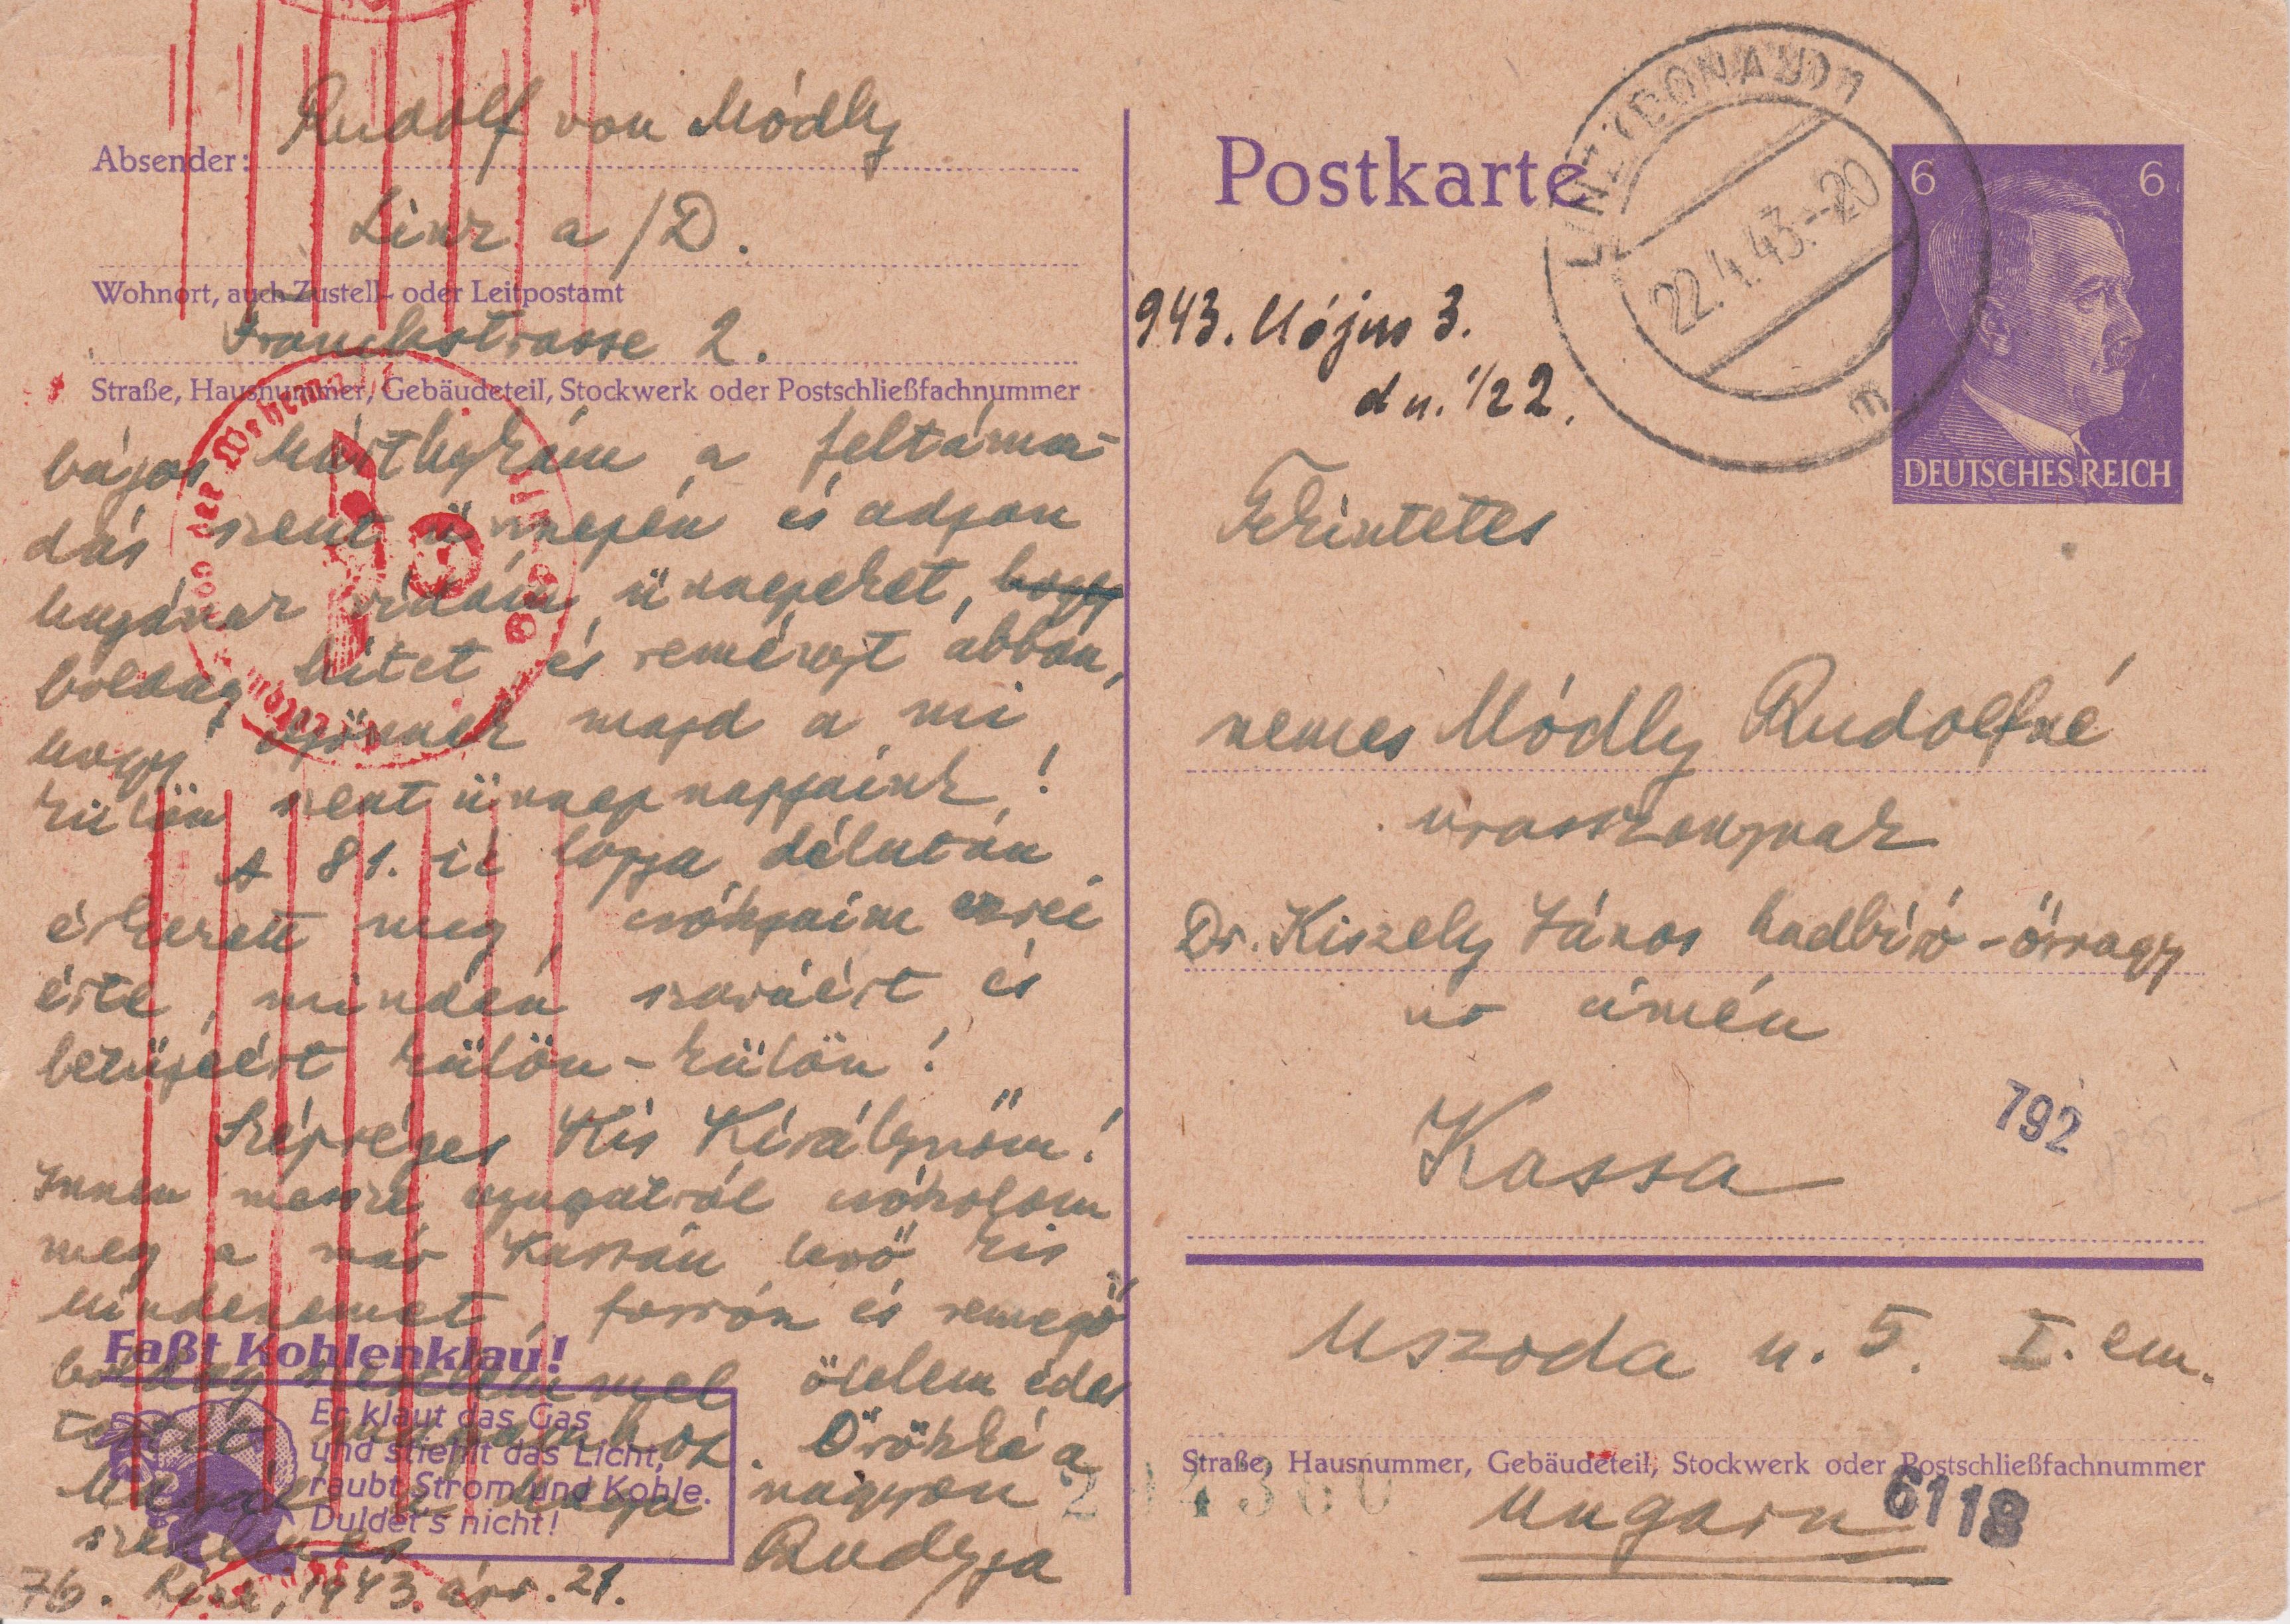 Rudolf von Módly
Absender:
Linz a/D.
Wohnort, auch Zustell- oder Leitpostamt
Franckstrasse 2.
Straße, Hausnummer, Gebäudeteil, Stockwerk oder Postschließfachnummer
bájos a feltáma-
dás szent ünnepén és adjon
magának vidám ünnepeket, hogy
boldog hitet és reményt abban,
hogy eljönnek majd a mi
külön szent ünnepnapjaink!
A 81. ik lapja délután
érkezett meg, csókjaim ezrei
érte, minden szaváért és
betűjéért külön-külön!
Szépséges Kis Királynőm!
Innen messze nyugatról csókolom
meg a már Kassán levő kis
Mindenemet, forrón és remegő
boldog szerelemmel ölelem édes
Örökké a
nagyon
szerelmes Rudyja
76. Linz, 1943. ápr. 21.
Faßt Kohlenklau!
Er klaut das Gas
und stiehlt das Licht,
raubt Strom und Kohle.
Duldet's nicht!
Postkarte
LINZ (DONAU) 1
22.4.43.-20
m
6 6
DEUTSCHES REICH
943. Május 3.
du. 1/2 2.
Tekintetes
nemes Módly Rudolfné
úrasszonynak
Dr. Kiszely János hadbíró-őrnagy
úr címén
Kassa
792
Uszoda u. 5. I. em.
Straße, Hausnummer, Gebäudeteil, Stockwerk oder Postschließfachnummer
Ungarn
6118